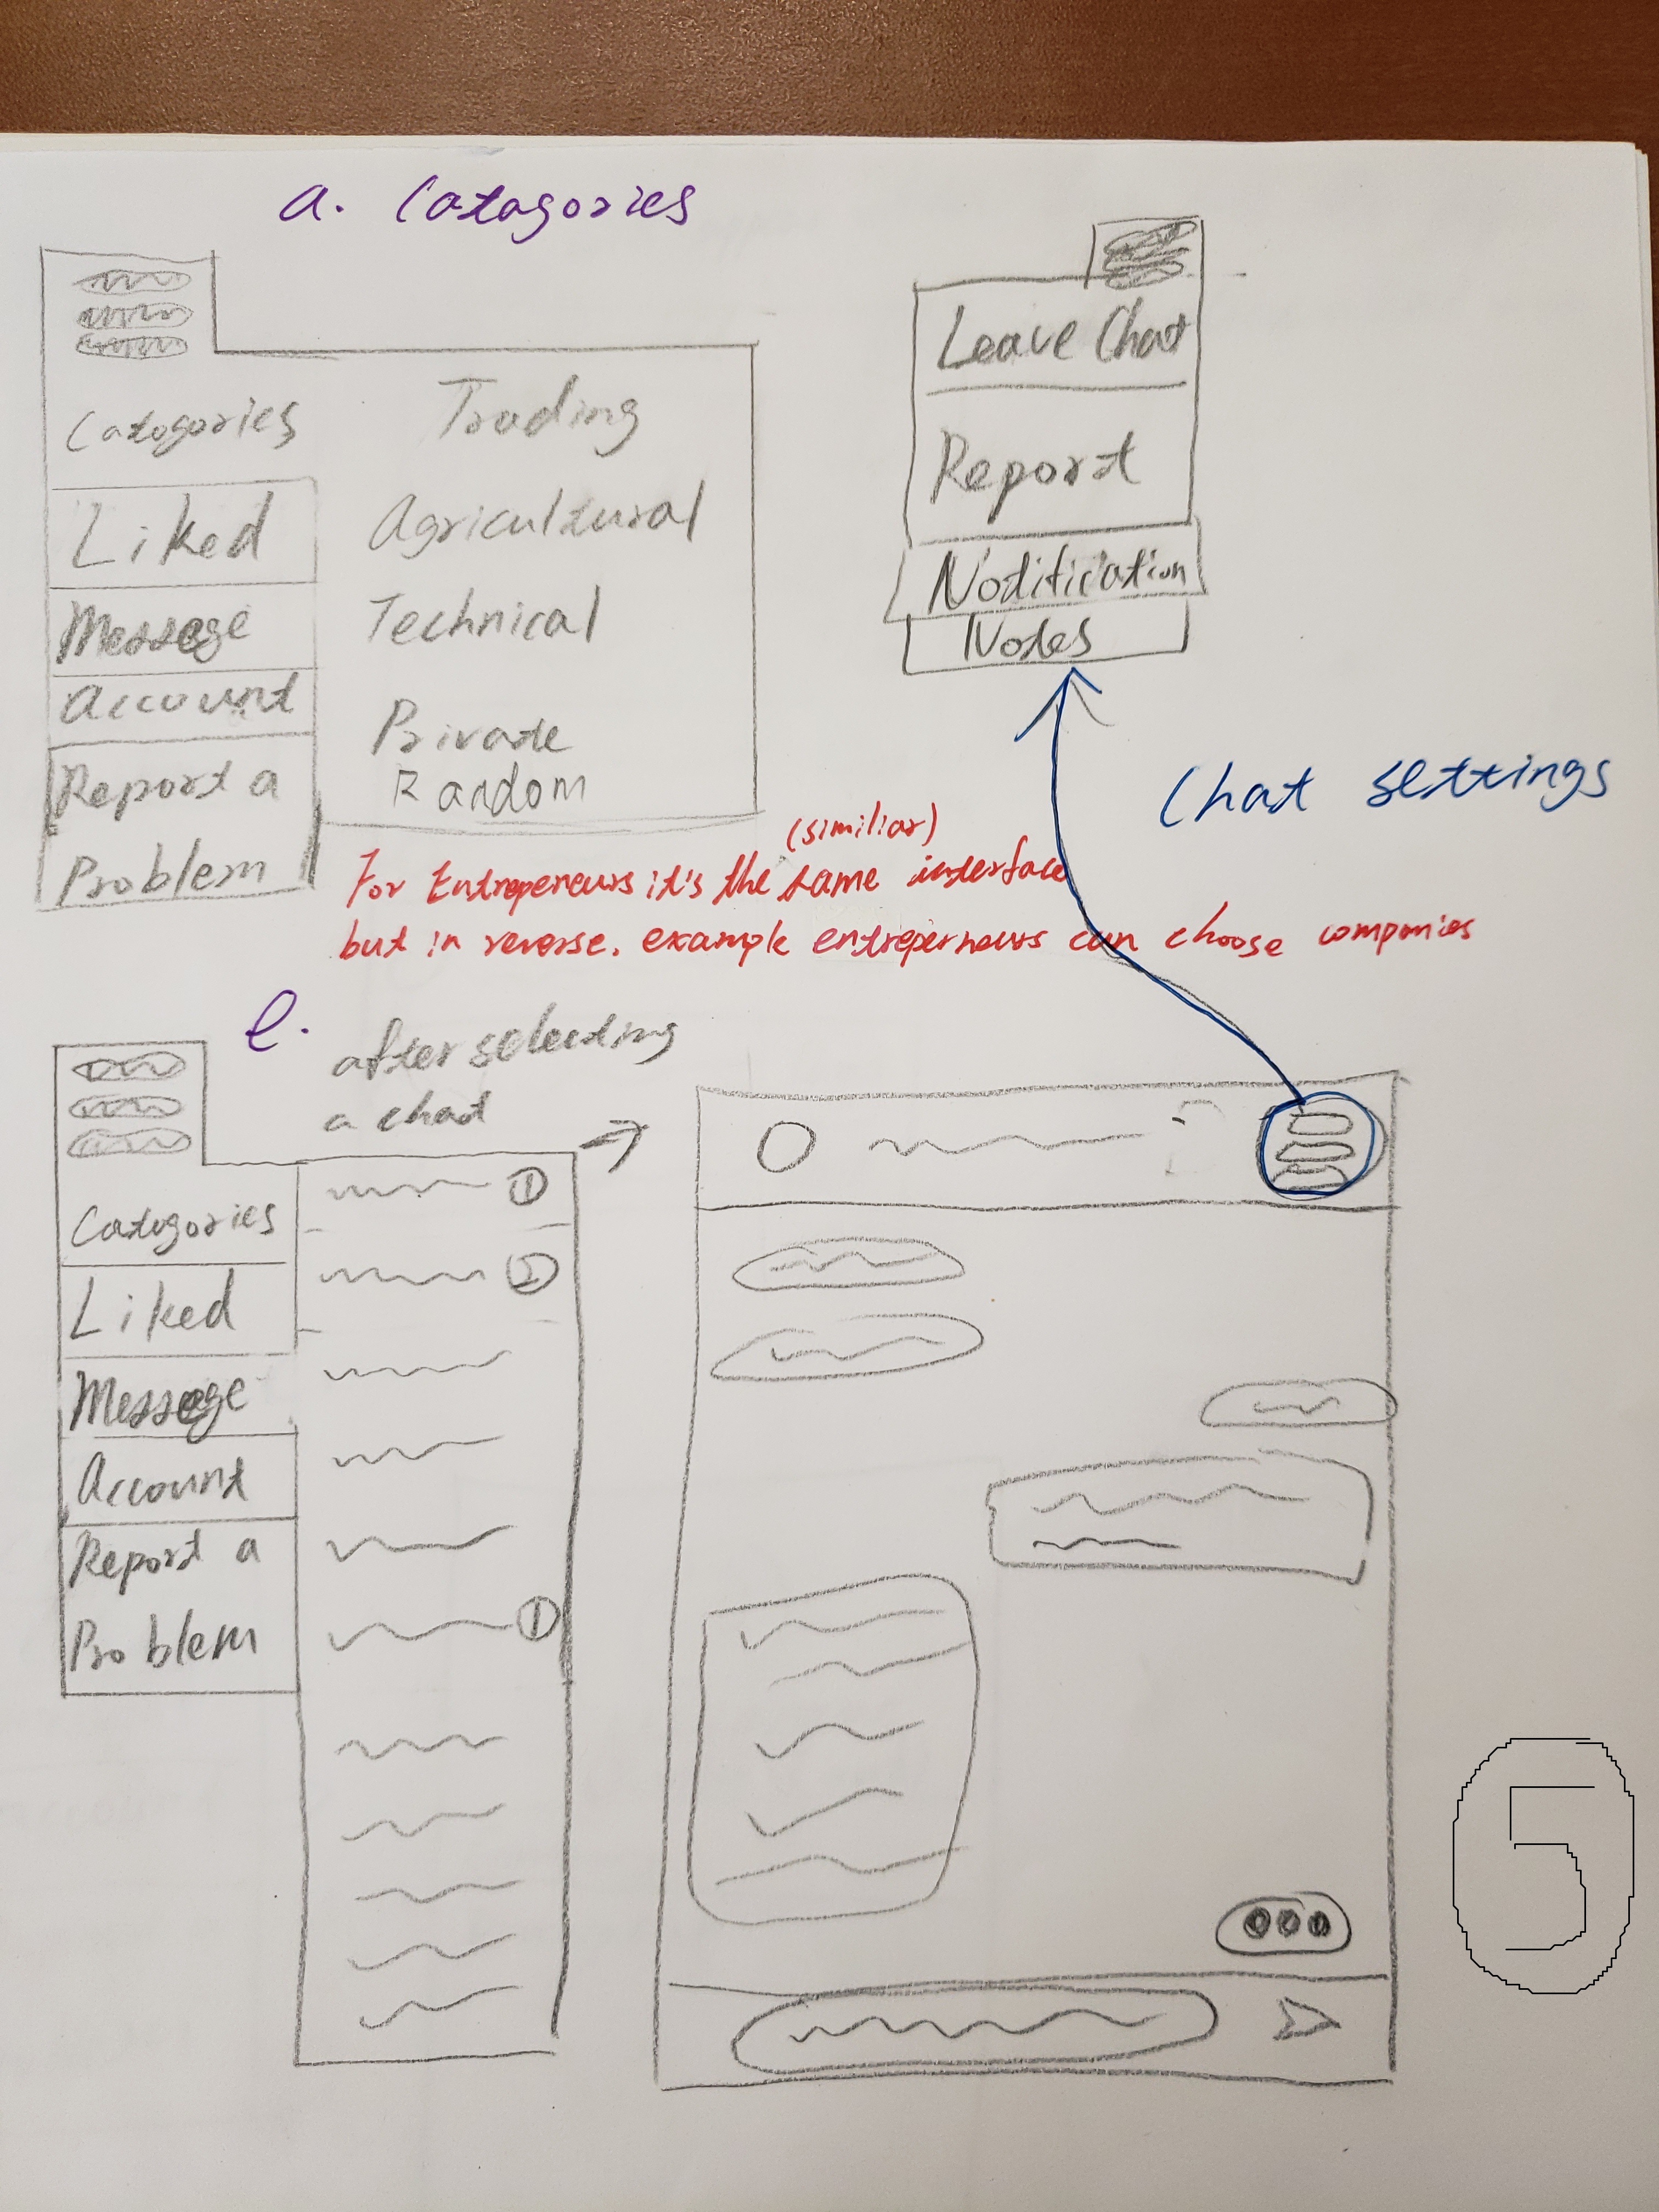 a. Catagories
Catogories
Liked
Message
Account
Report a
Problem
Trading
Agricultural
Technical
Private
Random
Leave Chat
Report
Notification
Notes
Chat settings
(similiar)
For Entrepeneurs it's the same interface
but in reverse. example entreperneurs can choose companies
e.
after selecting
a chat
Catogories
Liked
Message
Account
Report a
Problem
1
2
1
5